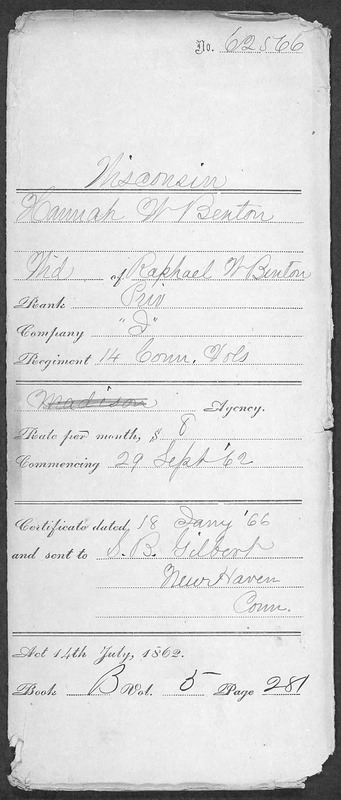 No. 62566
Wisconsin
Hannah W Benton
Wid of Raphael W Benton
Rank Priv
Company "I"
Regiment 14 Conn. Vols
Madison Agency.
Rate per month, $ 8
Commencing 29 Sept '62
Certificate dated 18 Jany '66
and sent to S. B. Gilbert
New Haven
Conn.
Act 14th July, 1862.
Book B Vol. 5 Page 281